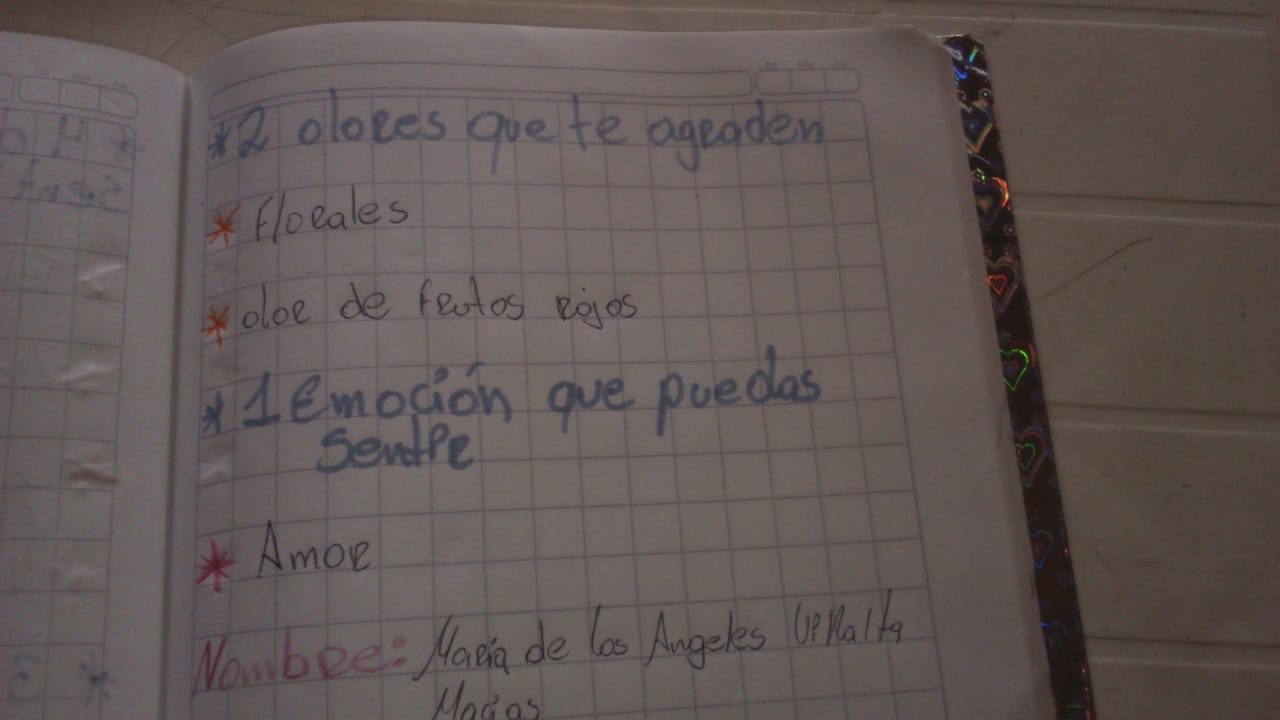 *2 olores que te agraden
* Florales
* olor de frutos rojos
* 1 Emoción que puedas
Sentir
* Amor
Nombre: María de los Angeles Viñalta
Macias